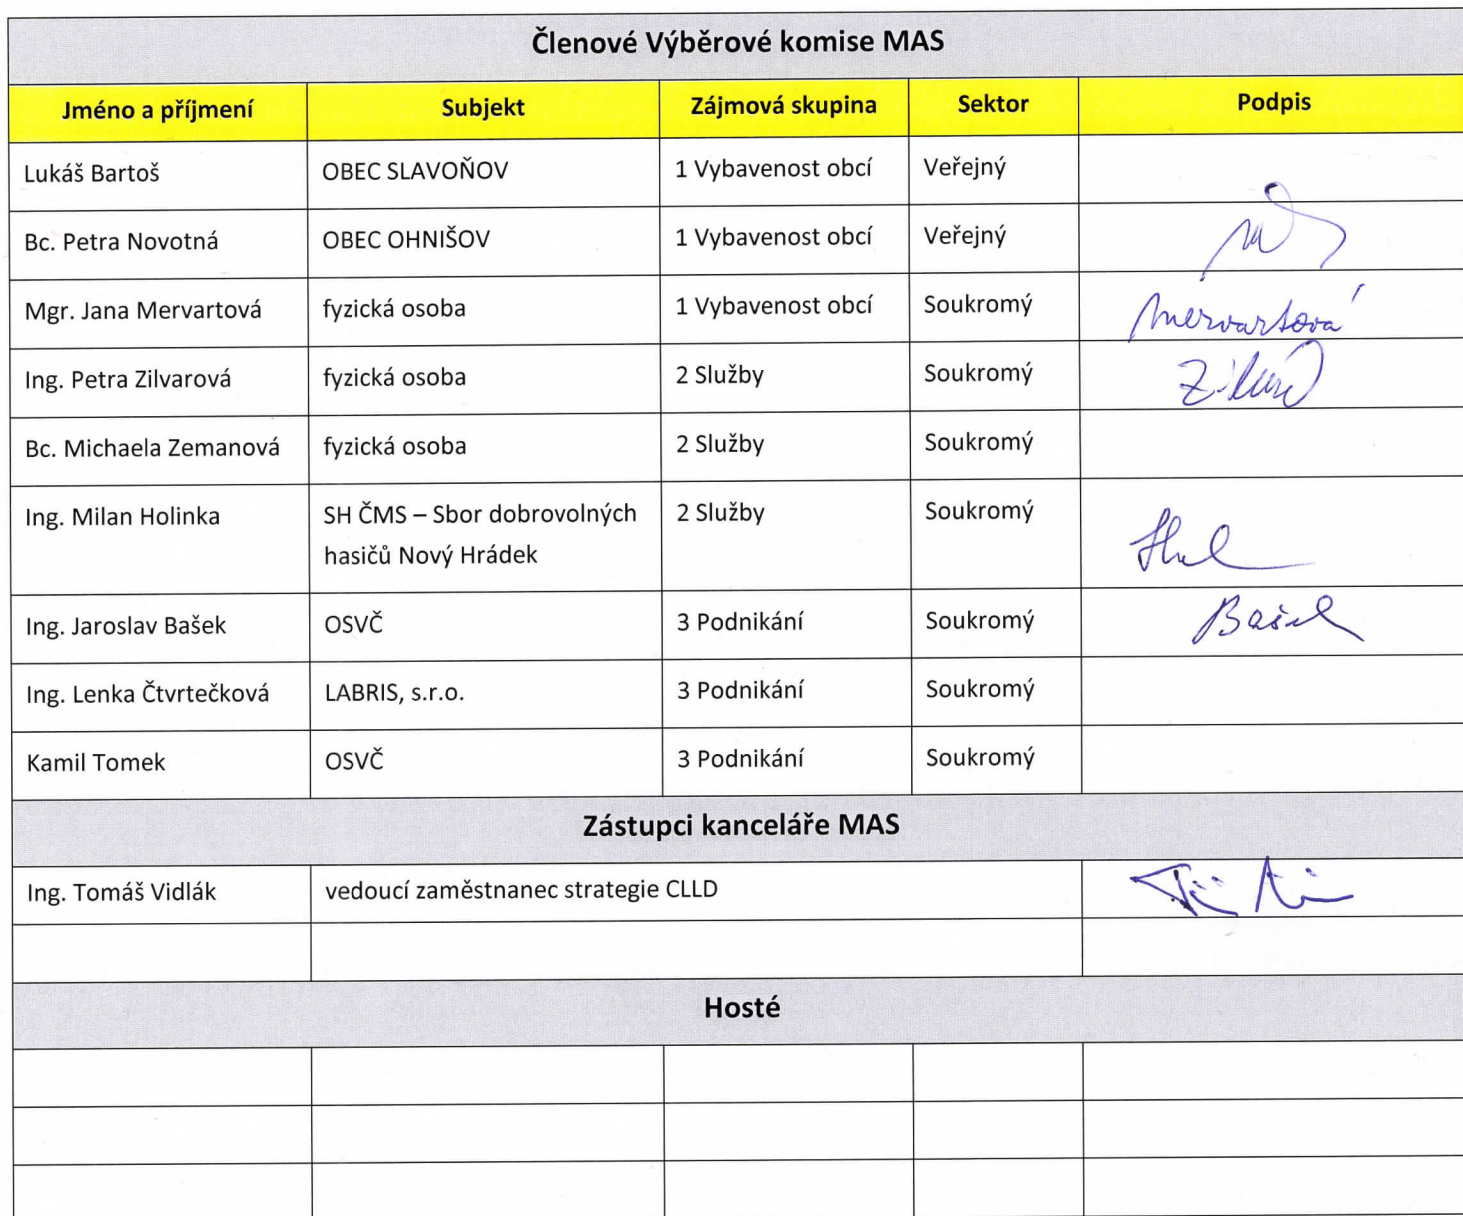 Členové Výběrové komise MAS
Jméno a příjmení Subjekt Zájmová skupina Sektor Podpis
Lukáš Bartoš OBEC SLAVOŇOV 1 Vybavenost obcí Veřejný
Bc. Petra Novotná OBEC OHNIŠOV 1 Vybavenost obcí Veřejný
Mgr. Jana Mervartová fyzická osoba 1 Vybavenost obcí Soukromý Mervartová
Ing. Petra Zilvarová fyzická osoba 2 Služby Soukromý
Bc. Michaela Zemanová fyzická osoba 2 Služby Soukromý
Ing. Milan Holinka SH ČMS – Sbor dobrovolných 2 Služby Soukromý
hasičů Nový Hrádek
Ing. Jaroslav Bašek OSVČ 3 Podnikání Soukromý Bašek
Ing. Lenka Čtvrtečková LABRIS, s.r.o. 3 Podnikání Soukromý
Kamil Tomek OSVČ 3 Podnikání Soukromý
Zástupci kanceláře MAS
Ing. Tomáš Vidlák vedoucí zaměstnanec strategie CLLD
Hosté